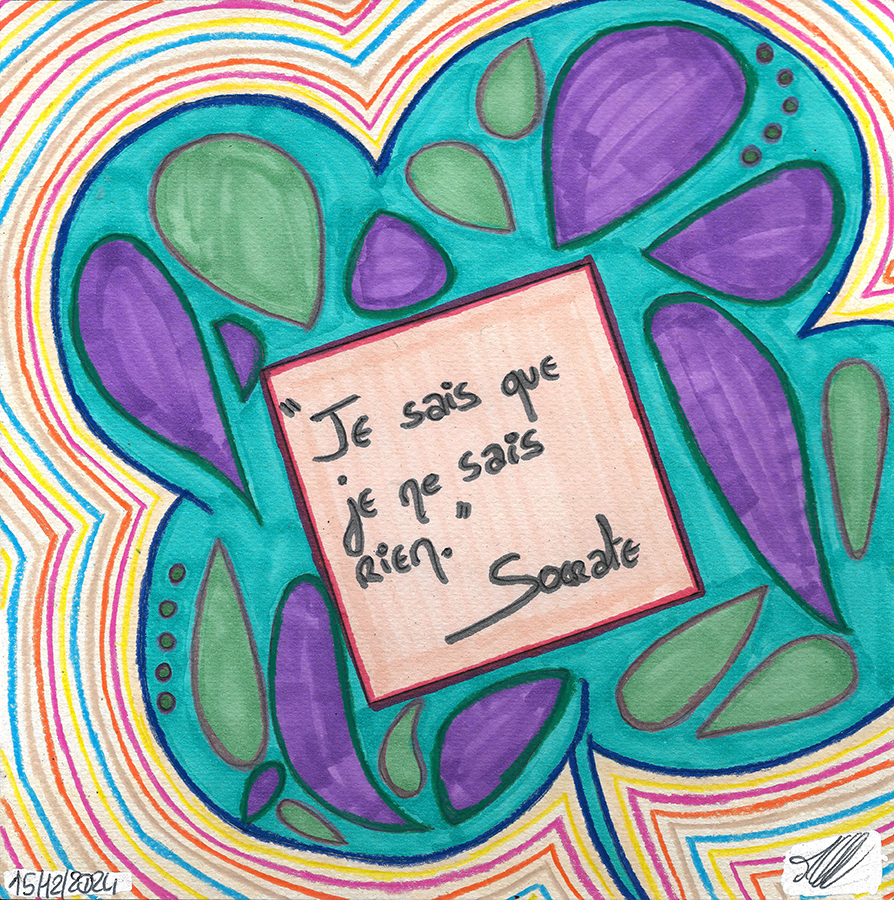 "Je sais que
je ne sais
rien."
Socrate
15/12/2024